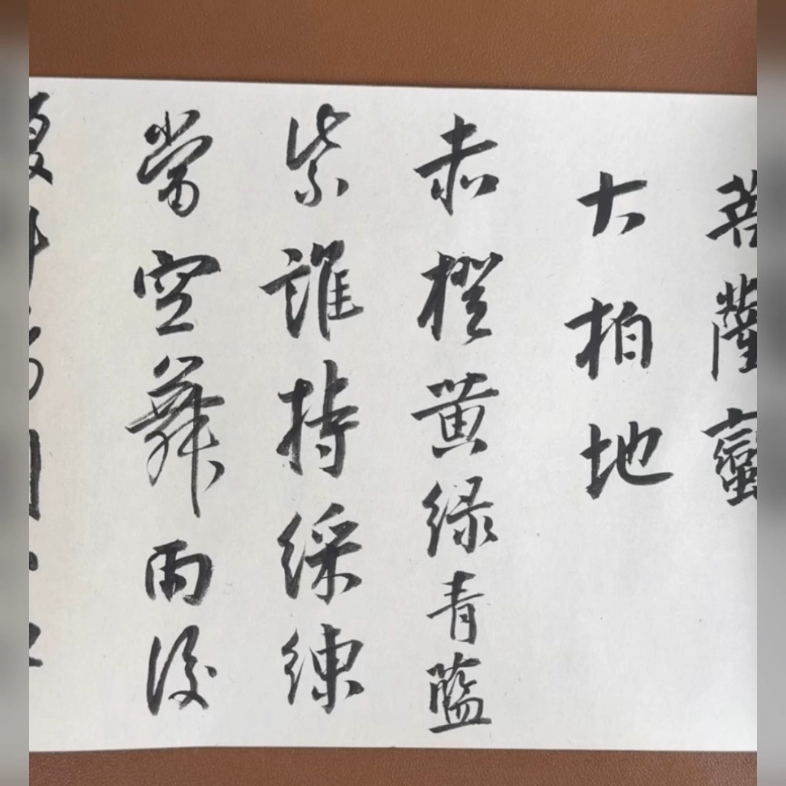 菩薩蠻
大柏地
赤橙黄绿青藍
紫誰持綵練
當空舞雨後